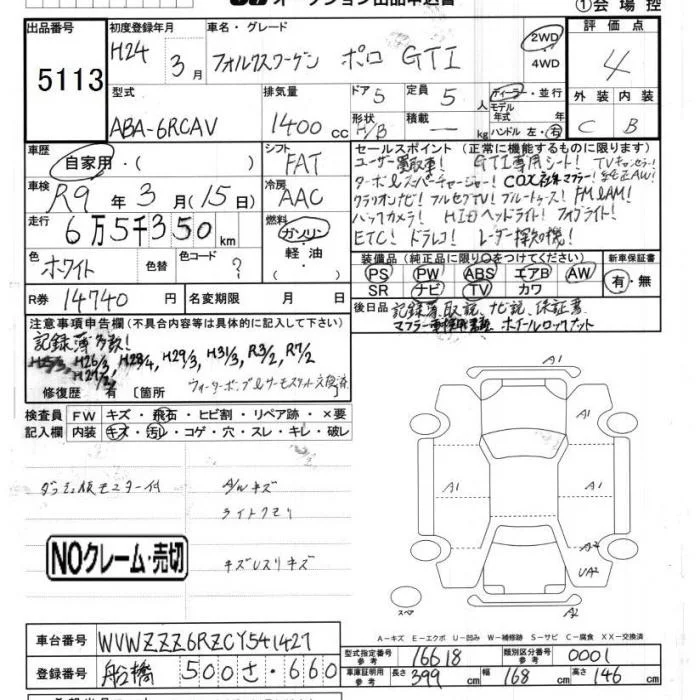 オークション出品申込書
①会場控
出品番号 5113
初度登録年月 H24年 3月
車名・グレード フォルクスワーゲン ポロ GTI
2WD
4WD
評価点 4
型式 ABA-6RCAV
排気量 1400 cc
ドア 5
定員 5 人
形状 H/B
積載 kg
ディーラー・並行
モデル年式 年式
ハンドル 左・右
外装 C
内装 B
車歴 自家用・( )
シフト FAT
車検 R9年 3月(15日)
冷房 AAC
走行 6万5千350km
燃料 ガソリン・軽油・
色 ホワイト
色替
色コード ?
R券 14740円
名変期限 月 日
セールスポイント (正常に機能するものに限ります)
ユーザー買取車! GTI専用シート! TVキャンセラー!
ターボ&スーパーチャージャー! COX マフラー! 純正AW!
クラリオンナビ! フルセグTV! ブルートゥース! FM&AM!
バックカメラ! HIDヘッドライト! フォグライト!
ETC! ドラレコ! レーダー探知機!
装備品 (純正品に限り○をつけてください)
PS PW ABS エアB AW
SR ナビ TV カワ
新車保証書 有・無
後日品 記録簿、取説、ナビ説、保証書
マフラー ホイールロックナット
注意事項申告欄(不具合内容等は具体的に記入して下さい)
記録簿多数!
H25/3、H26/3、H28/4、H29/3、H31/3、R3/2、R7/2
H27/2、
修復歴 有 〔箇所 ウォーターポンプ&サーモスタット交換済〕
検査員 FW キズ・飛石・ヒビ割・リペア跡・×要
記入欄 内装 キズ・汚レ・コゲ・穴・スレ・キレ・破レ
ダッシュ板モニター付
AWキズ
ライトクモリ
キズUスリキズ
NOクレーム・売切
A1
A1
A1
A1
A2
UA2
A2
スペア
A-キズ E-エクボ U-凹み W-補修跡 S-サビ C-腐食 XX-交換済
車台番号 WVWZZZ6RZCY541427
登録番号 船橋 500 さ・660
型式指定番号 参考 16618
類別区分番号 参考 0001
車庫証明用 参考 長さ 399 cm 幅 168 cm 高さ 146 cm